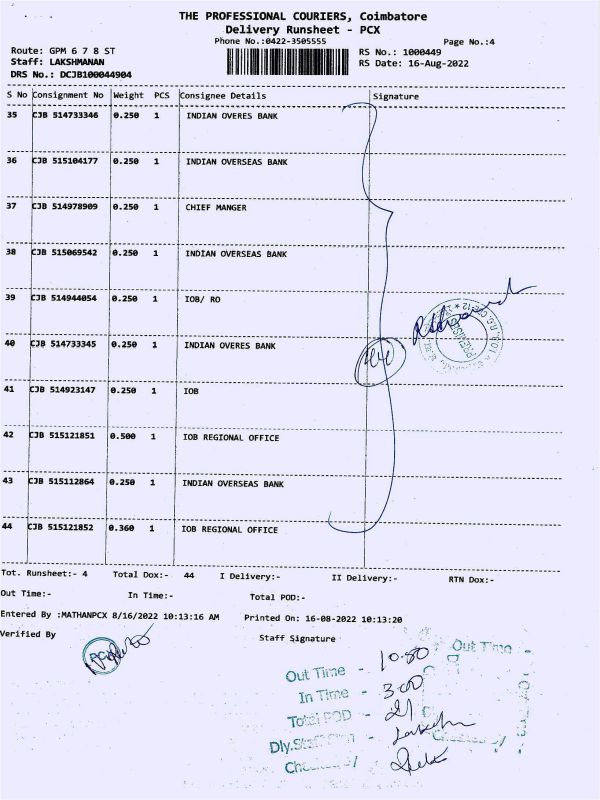 THE PROFESSIONAL COURIERS, Coimbatore
Delivery Runsheet - PCX
Phone No.:0422-3505555
Page No.:4
Route: GPM 6 7 8 ST
RS No.: 1000449
Staff: LAKSHMANAN
RS Date: 16-Aug-2022
DRS No.: DCJB100044904
S No Consignment No Weight PCS Consignee Details Signature
35 CJB 514733346 0.250 1 INDIAN OVERES BANK
36 CJB 515104177 0.250 1 INDIAN OVERSEAS BANK
37 CJB 514978909 0.250 1 CHIEF MANGER
38 CJB 515069542 0.250 1 INDIAN OVERSEAS BANK
39 CJB 514944054 0.250 1 IOB/ RO
40 CJB 514733345 0.250 1 INDIAN OVERES BANK
44
41 CJB 514923147 0.250 1 IOB
42 CJB 515121851 0.500 1 IOB REGIONAL OFFICE
43 CJB 515112864 0.250 1 INDIAN OVERSEAS BANK
44 CJB 515121852 0.360 1 IOB REGIONAL OFFICE
Tot. Runsheet:- 4 Total Dox:- 44 I Delivery:- II Delivery:- RTN Dox:-
Out Time:- In Time:- Total POD:-
Entered By :MATHANPCX 8/16/2022 10:13:16 AM Printed On: 16-08-2022 10:13:20
Verified By Staff Signature
Out Time
Out Time -
In Time - 3.00
Total POD - 21
Dly.Staff Sign -
Checked By